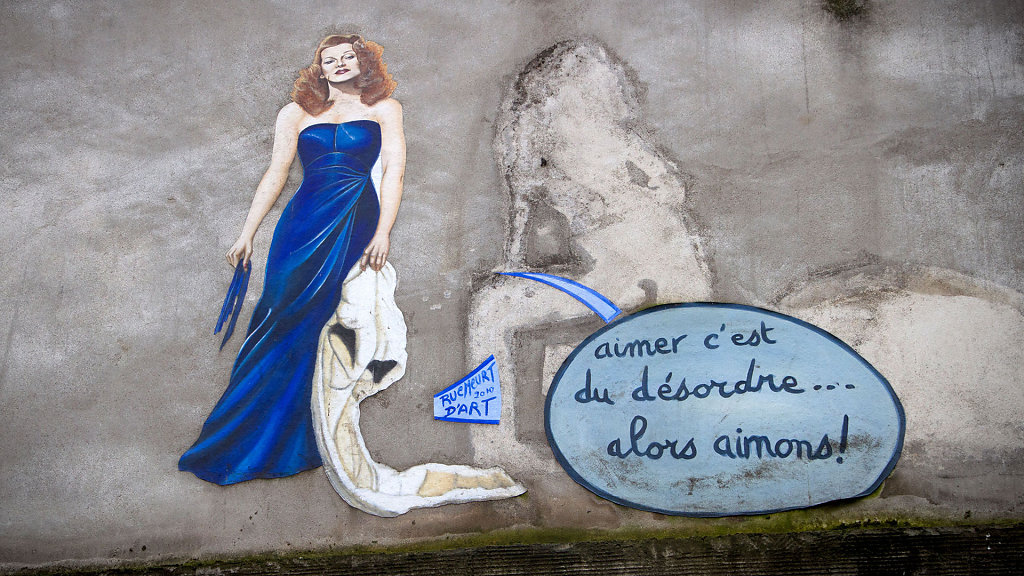 RUEMEURT
2010
D'ART
aimer c'est
du désordre....
alors aimons!